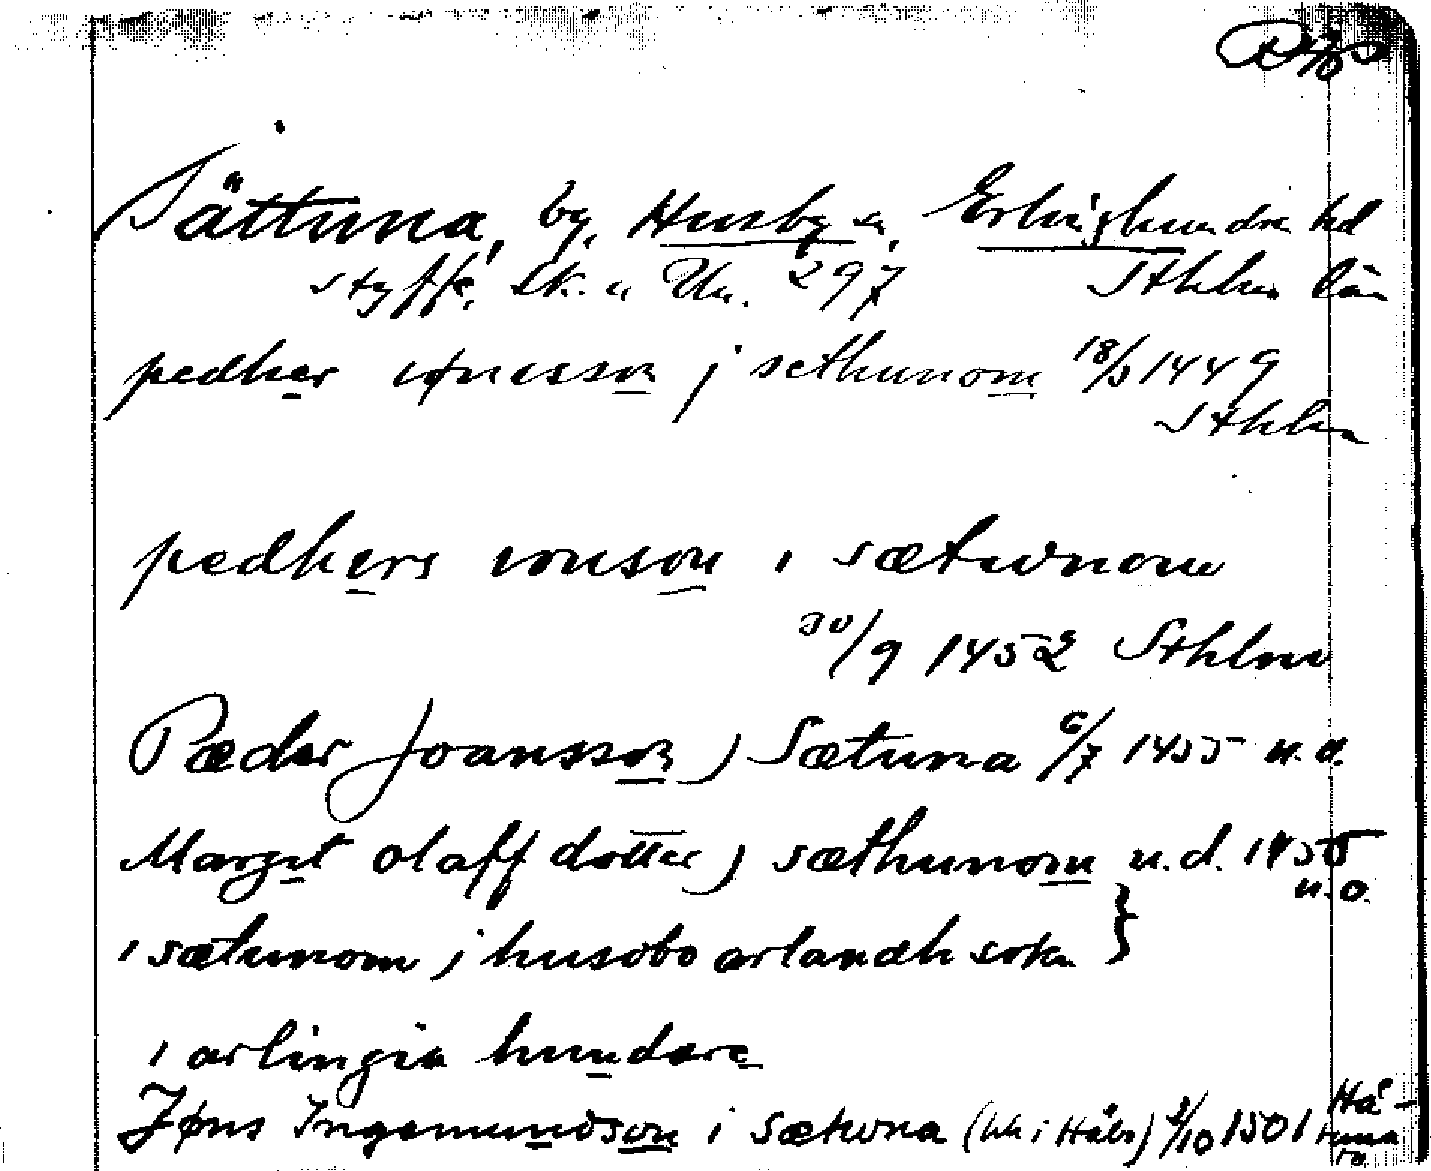 Tättuna, by, Husby sn, Erlinghundra hd
Styffe, Sk. u Un. 297 Sthlms län
pedher iønisson j sethunom 18/5 1449
Sthlm
pedhers ionson i sætwnom
30/9 1452 Sthlm
Pæder Joansson j Sætuna 6/7 1455 u.o.
Margit olaff dotter j sæthunom u.d. 1455
u.o.
i sætunom j husobo ærlandh sokn }
i ærlingia hundare
Jøns Ingemundson i Sætwna (hh i Håbo) 2/10 1501 Håtuna